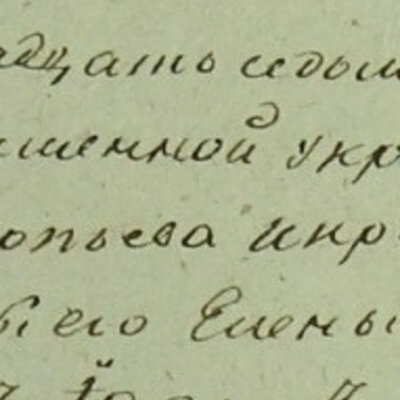 адцать седьм
шенной укр
опьева и кр
ы его Елены